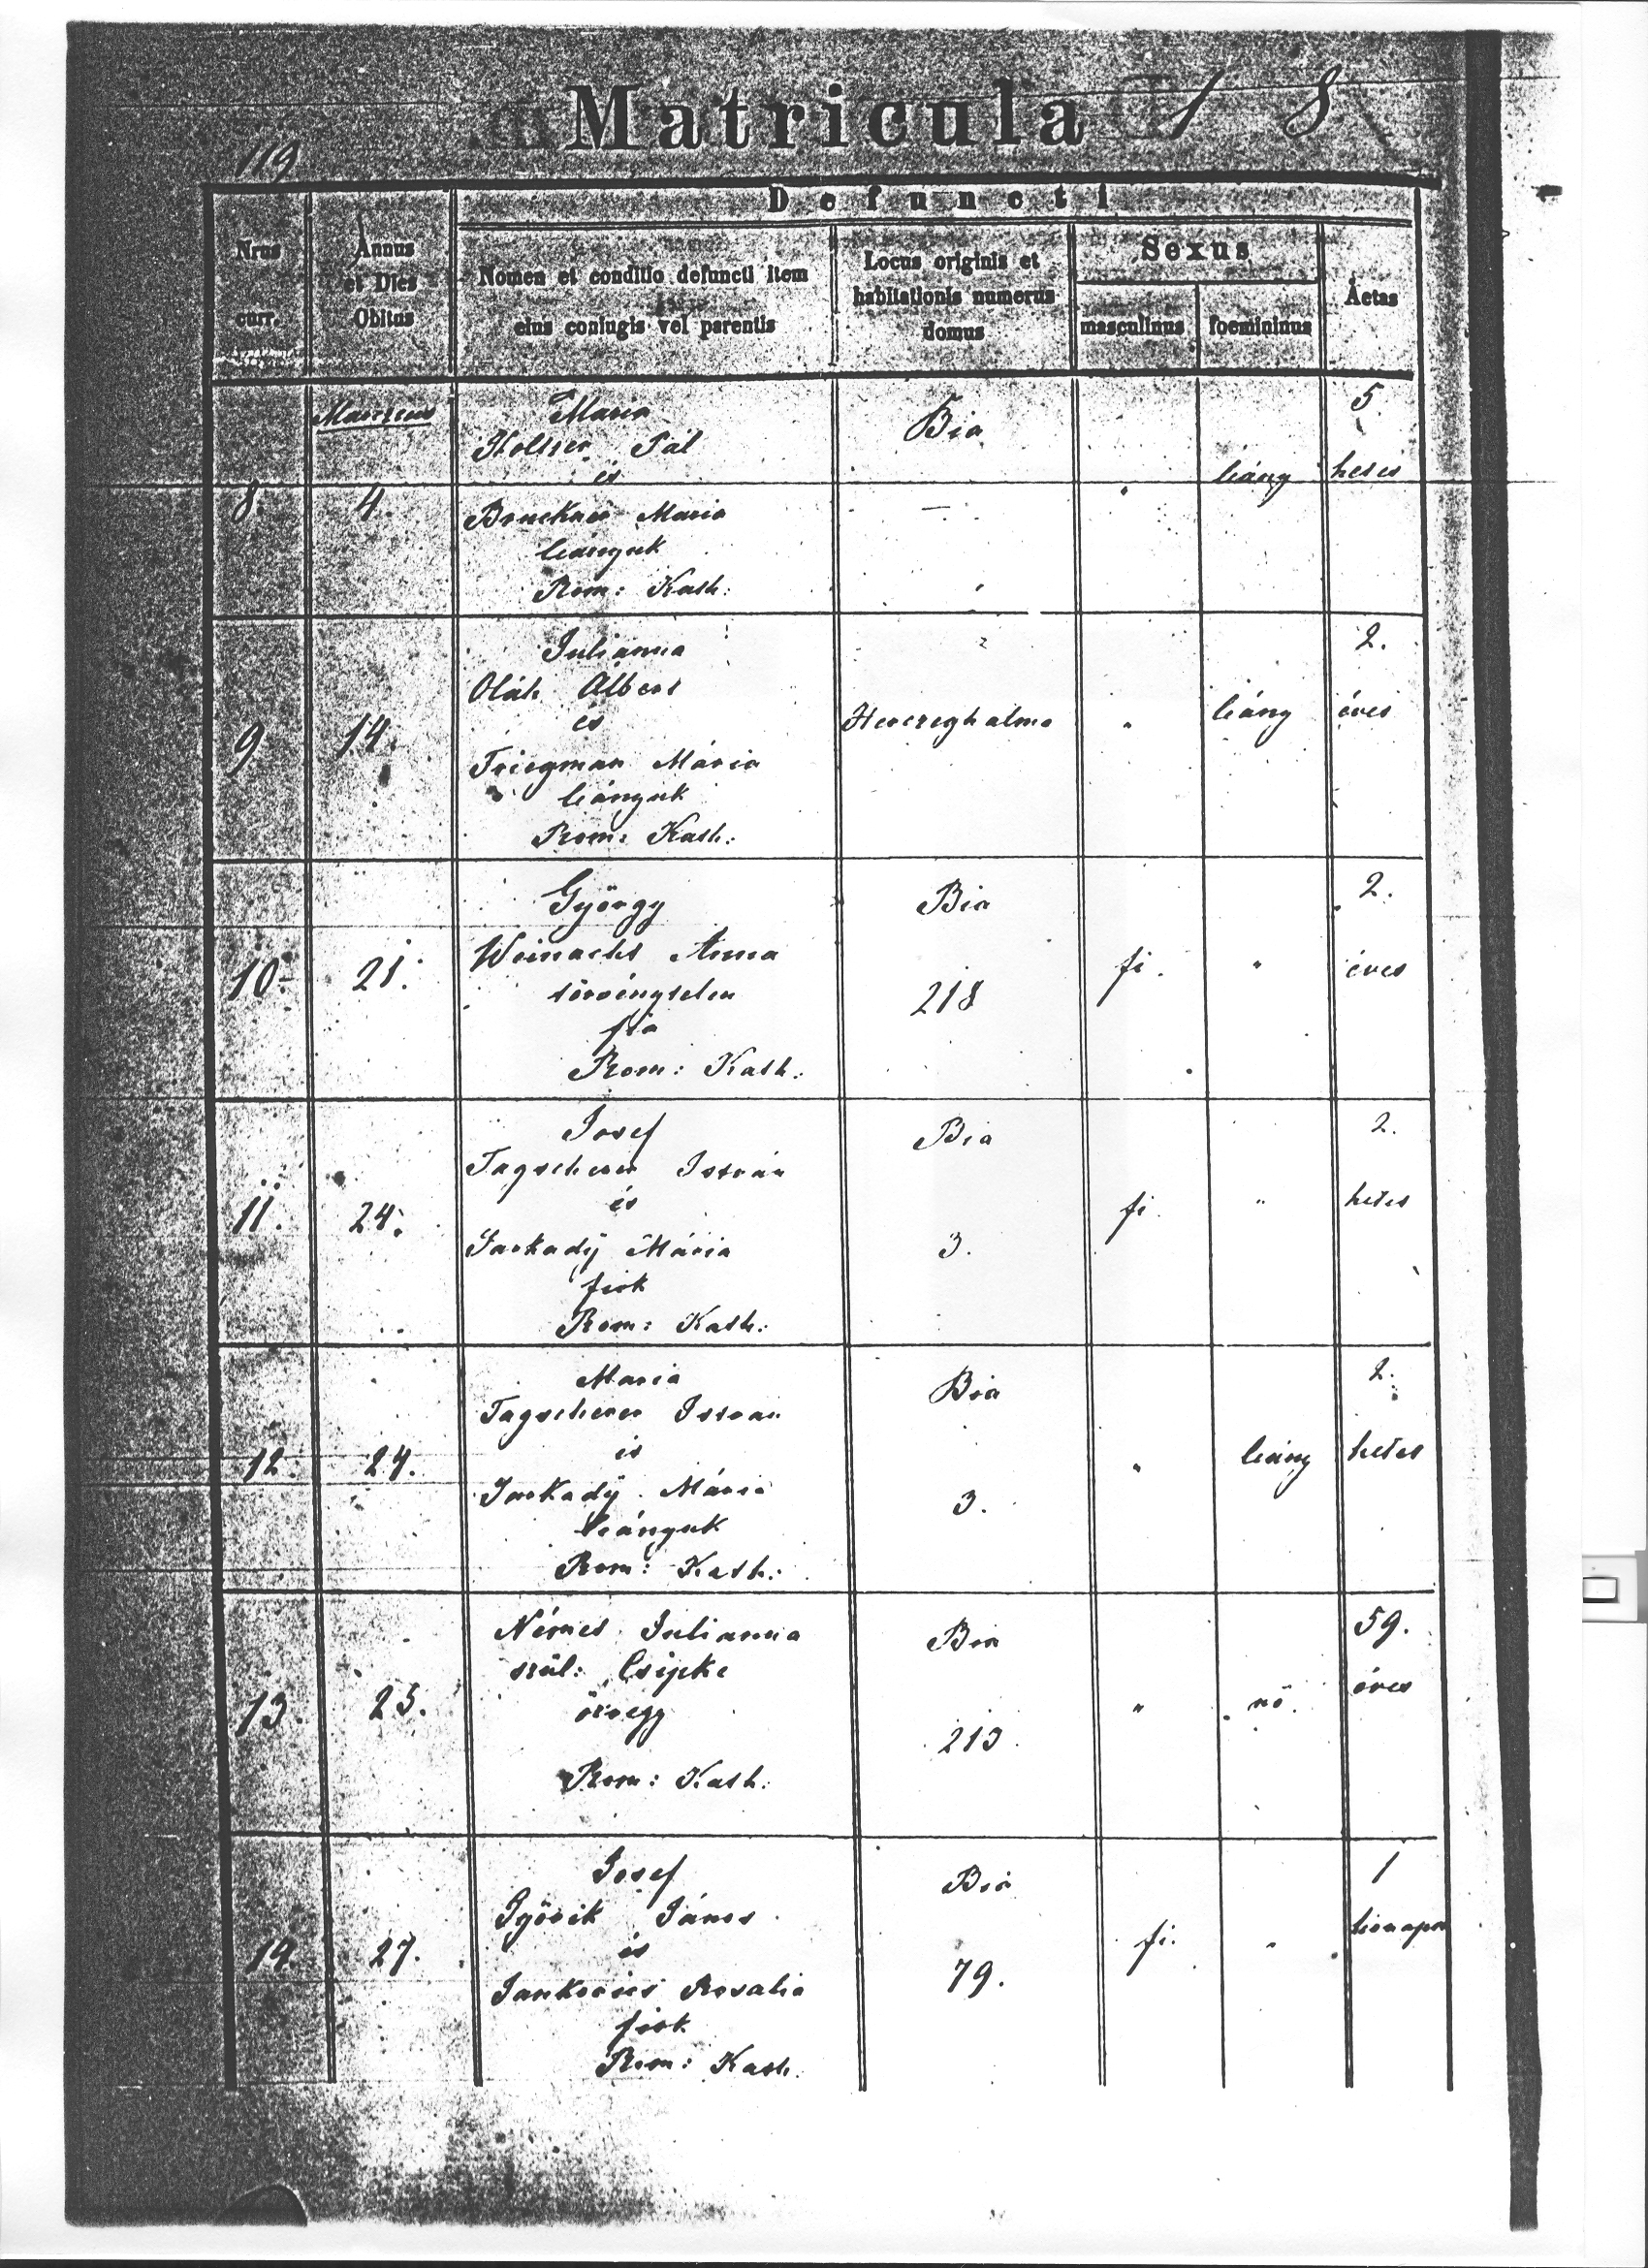 Matricula 1 8
119
Defuncti
Nrus
curr.
Annus
et Dies
Obitus
Nomen et conditio defuncti item
eius coniugis vel parentis
Locus originis et
habitationis numerus
domus
Sexus
masculinus
foemininus
Aetas
Martius
8.
4.
Maria
Pál
és
Bruckner Maria
leányuk
Rom: Kath:
Bia
"
leány
5
hetes
9
14.
Julianna
Oláh Albert
és
Friegman Mária
leányuk
Rom: Kath:
Herczeghalma
"
leány
2.
éves
10.
21.
György
Weinacht Anna
törvénytelen
fia
Rom: Kath:
Bia
218
fi.
"
2.
éves
11.
24.
Josef
Tagscherer István
és
Sarkady Mária
fiok
Rom: Kath:
Bia
3.
fi.
"
2.
hetes
12.
24.
Maria
Tagscherer Istvan
és
Sarkady Mária
leányuk
Rom: Kath:
Bia
3.
"
leány
2.
hetes
13.
25.
Német Julianna
szül: Csipke
özvegy
Rom: Kath:
Bia
213
"
nő.
59.
éves
14.
27.
Josef
Györik János
és
Jankovics Rosalia
fiok
Rom: Kath.
Bia
79.
fi.
"
1